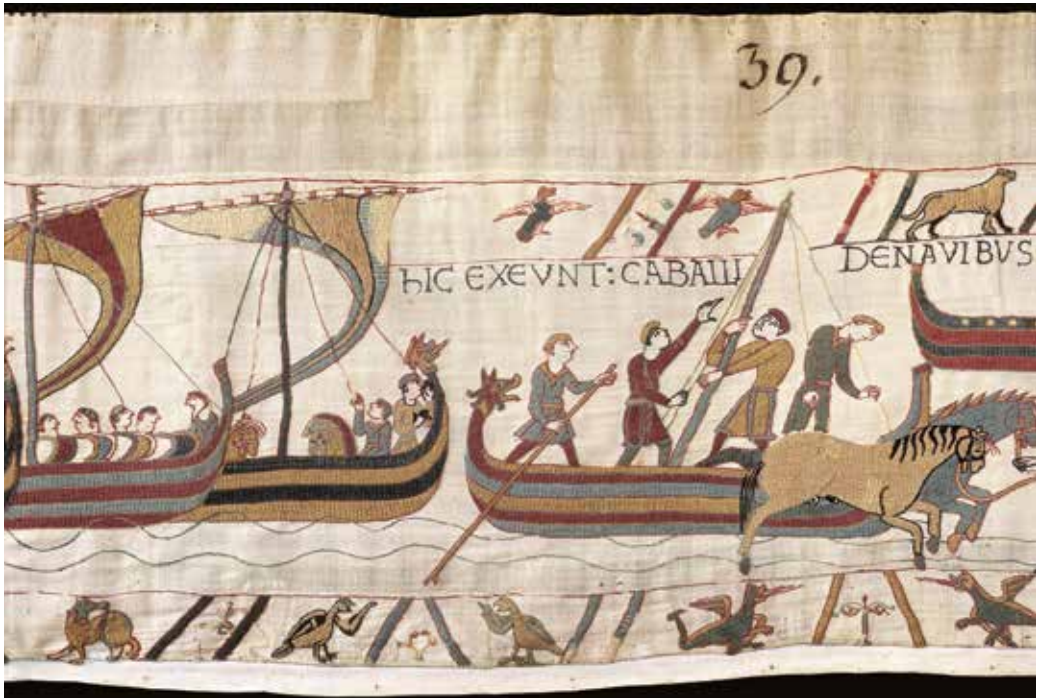 39.
hIC EXEVNT: CABALLI
DENAVIBVS